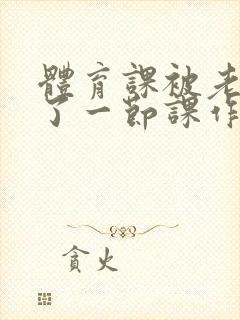 體育課被老
了一節課作
貪火